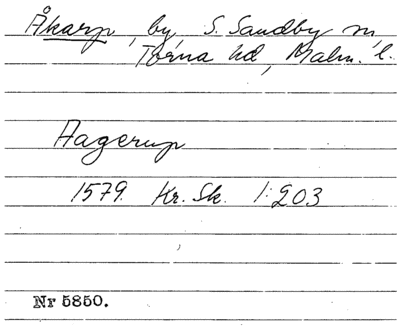 Åkarp, by, S. Sandby sn,
Torna hd, Malm. l.
Aagerup
1579. Kr. Sk. 1:203
Nr 5850.